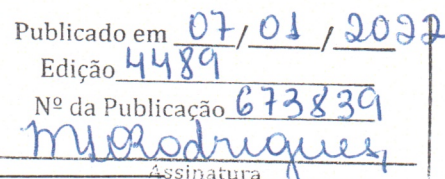 Publicado em 07/01/2022
Edição 4489
Nº da Publicação 673839
Assinatura